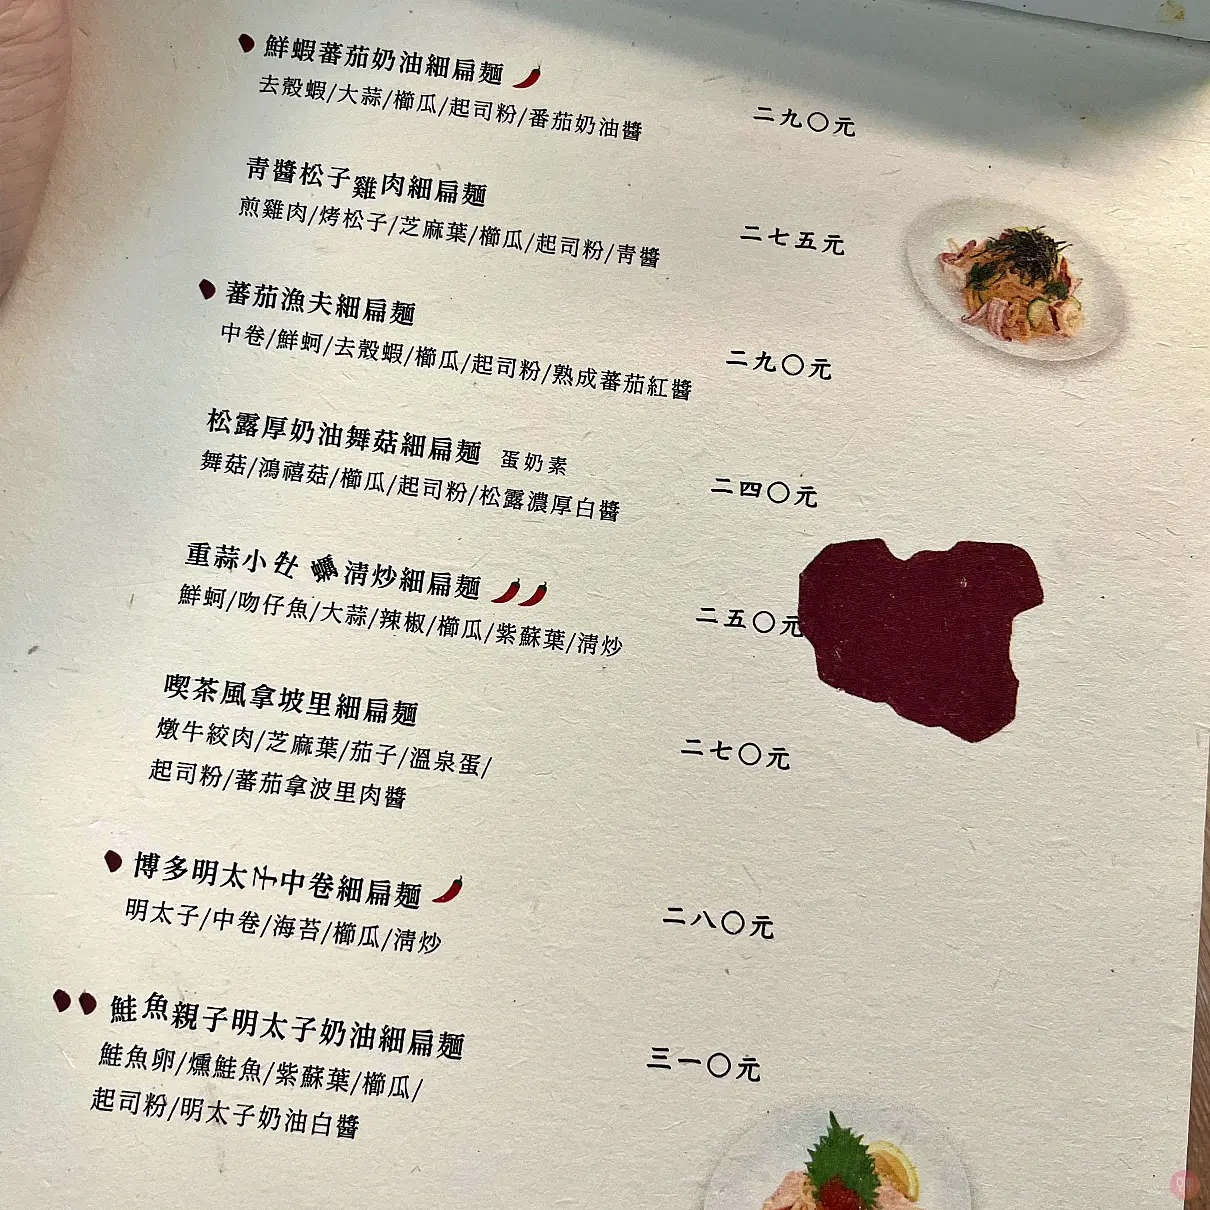 鮮蝦蕃茄奶油細扁麵
去殼蝦/大蒜/櫛瓜/起司粉/番茄奶油醬
二九〇元
青醬松子雞肉細扁麵
煎雞肉/烤松子/芝麻葉/櫛瓜/起司粉/青醬
二七五元
蕃茄漁夫細扁麵
中卷/鮮蚵/去殼蝦/櫛瓜/起司粉/熟成蕃茄紅醬
二九〇元
松露厚奶油舞菇細扁麵 蛋奶素
舞菇/鴻禧菇/櫛瓜/起司粉/松露濃厚白醬
二四〇元
重蒜小牡蠣清炒細扁麵
鮮蚵/吻仔魚/大蒜/辣椒/櫛瓜/紫蘇葉/清炒
二五〇元
喫茶風拿坡里細扁麵
燉牛絞肉/芝麻葉/茄子/溫泉蛋/
起司粉/蕃茄拿波里肉醬
二七〇元
博多明太子中卷細扁麵
明太子/中卷/海苔/櫛瓜/清炒
二八〇元
鮭魚親子明太子奶油細扁麵
鮭魚卵/燻鮭魚/紫蘇葉/櫛瓜/
起司粉/明太子奶油白醬
三一〇元